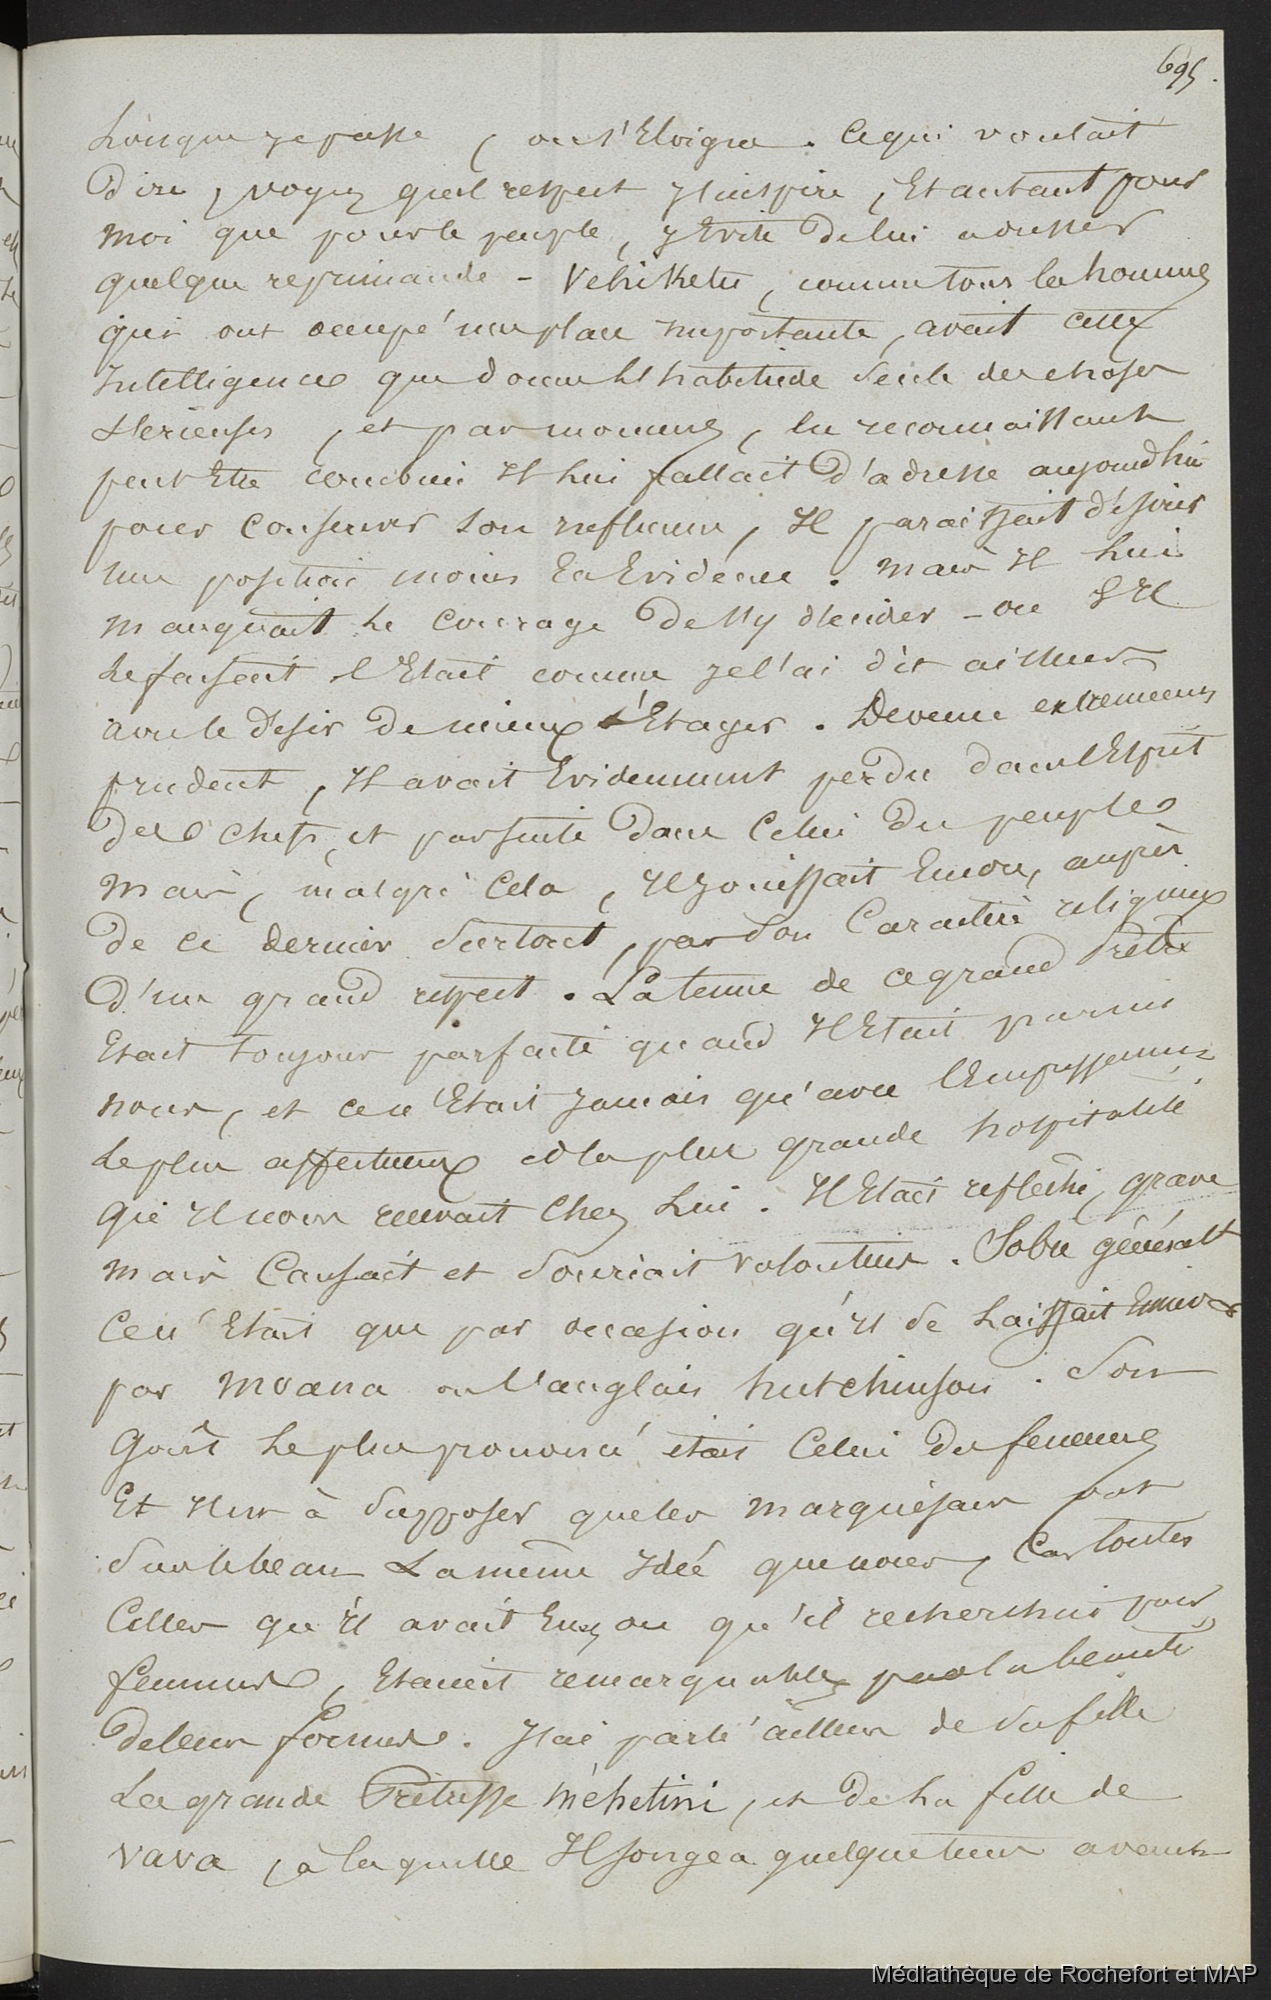 695.
Lorsque je passe, on s'Eloigne. Ce qui voulait
Dire, voyez quel respect j'inspire, Et autant pour
moi que pour le peuple, j'Evite de lui adresser
quelque reprimande - Vehiketu, comme tous les hommes
qui ont occupé une place importante, avait cette
Intelligence que donne l'habitude seule des choses
serieuses, et par moment, en reconnaissant
peut Etre combien Il lui fallait d'adresse aujourd'hui
pour conserver son influence, Il paraissait désirer
une position moins En Evidence. Mais Il lui
manquait le courage de s'y décider - ou s'Il
le faisait c'Etait comme je l'ai dit ailleurs
avec le désir de mieux s'Etayer. Devenu extremement
prudent, Il avait Evidemment perdu dans l'Esprit
des chefs, et par suite dans celui du peuple
Mais, malgré cela, Il jouissait Encore, auprès
de ce dernier surtout, par son caractère religieux
d'un grand respect. La tenue de ce grand Prêtre
Etait toujours parfaite quand Il Etait parmi
nous, et ce n'Etait jamais qu'avec l'Empressement
le plus affectueux et la plus grande hospitalité
qu'Il nous recevait chez lui. Il Etait refléchi, grave
mais causait et souriait volontiers. Sobre généralt
ce n'Etait que par occasion qu'Il se laissait Enivrer
par Moana ou l'anglais hutchinson. Son
goût le plus prononcé était celui des femmes
Et Il est à supposer que les marquésans ont
sur le beau La même Idée que nous, car toutes
celles qu'Il avait Eues ou qu'il recherchait pour
femmes, Etaient remarquables par la beauté
de leurs formes. J'ai parlé ailleurs de sa fille
La grande Prêtresse Méhetini, et de la fille de
Vava, à laquelle Il songea quelque tems avant